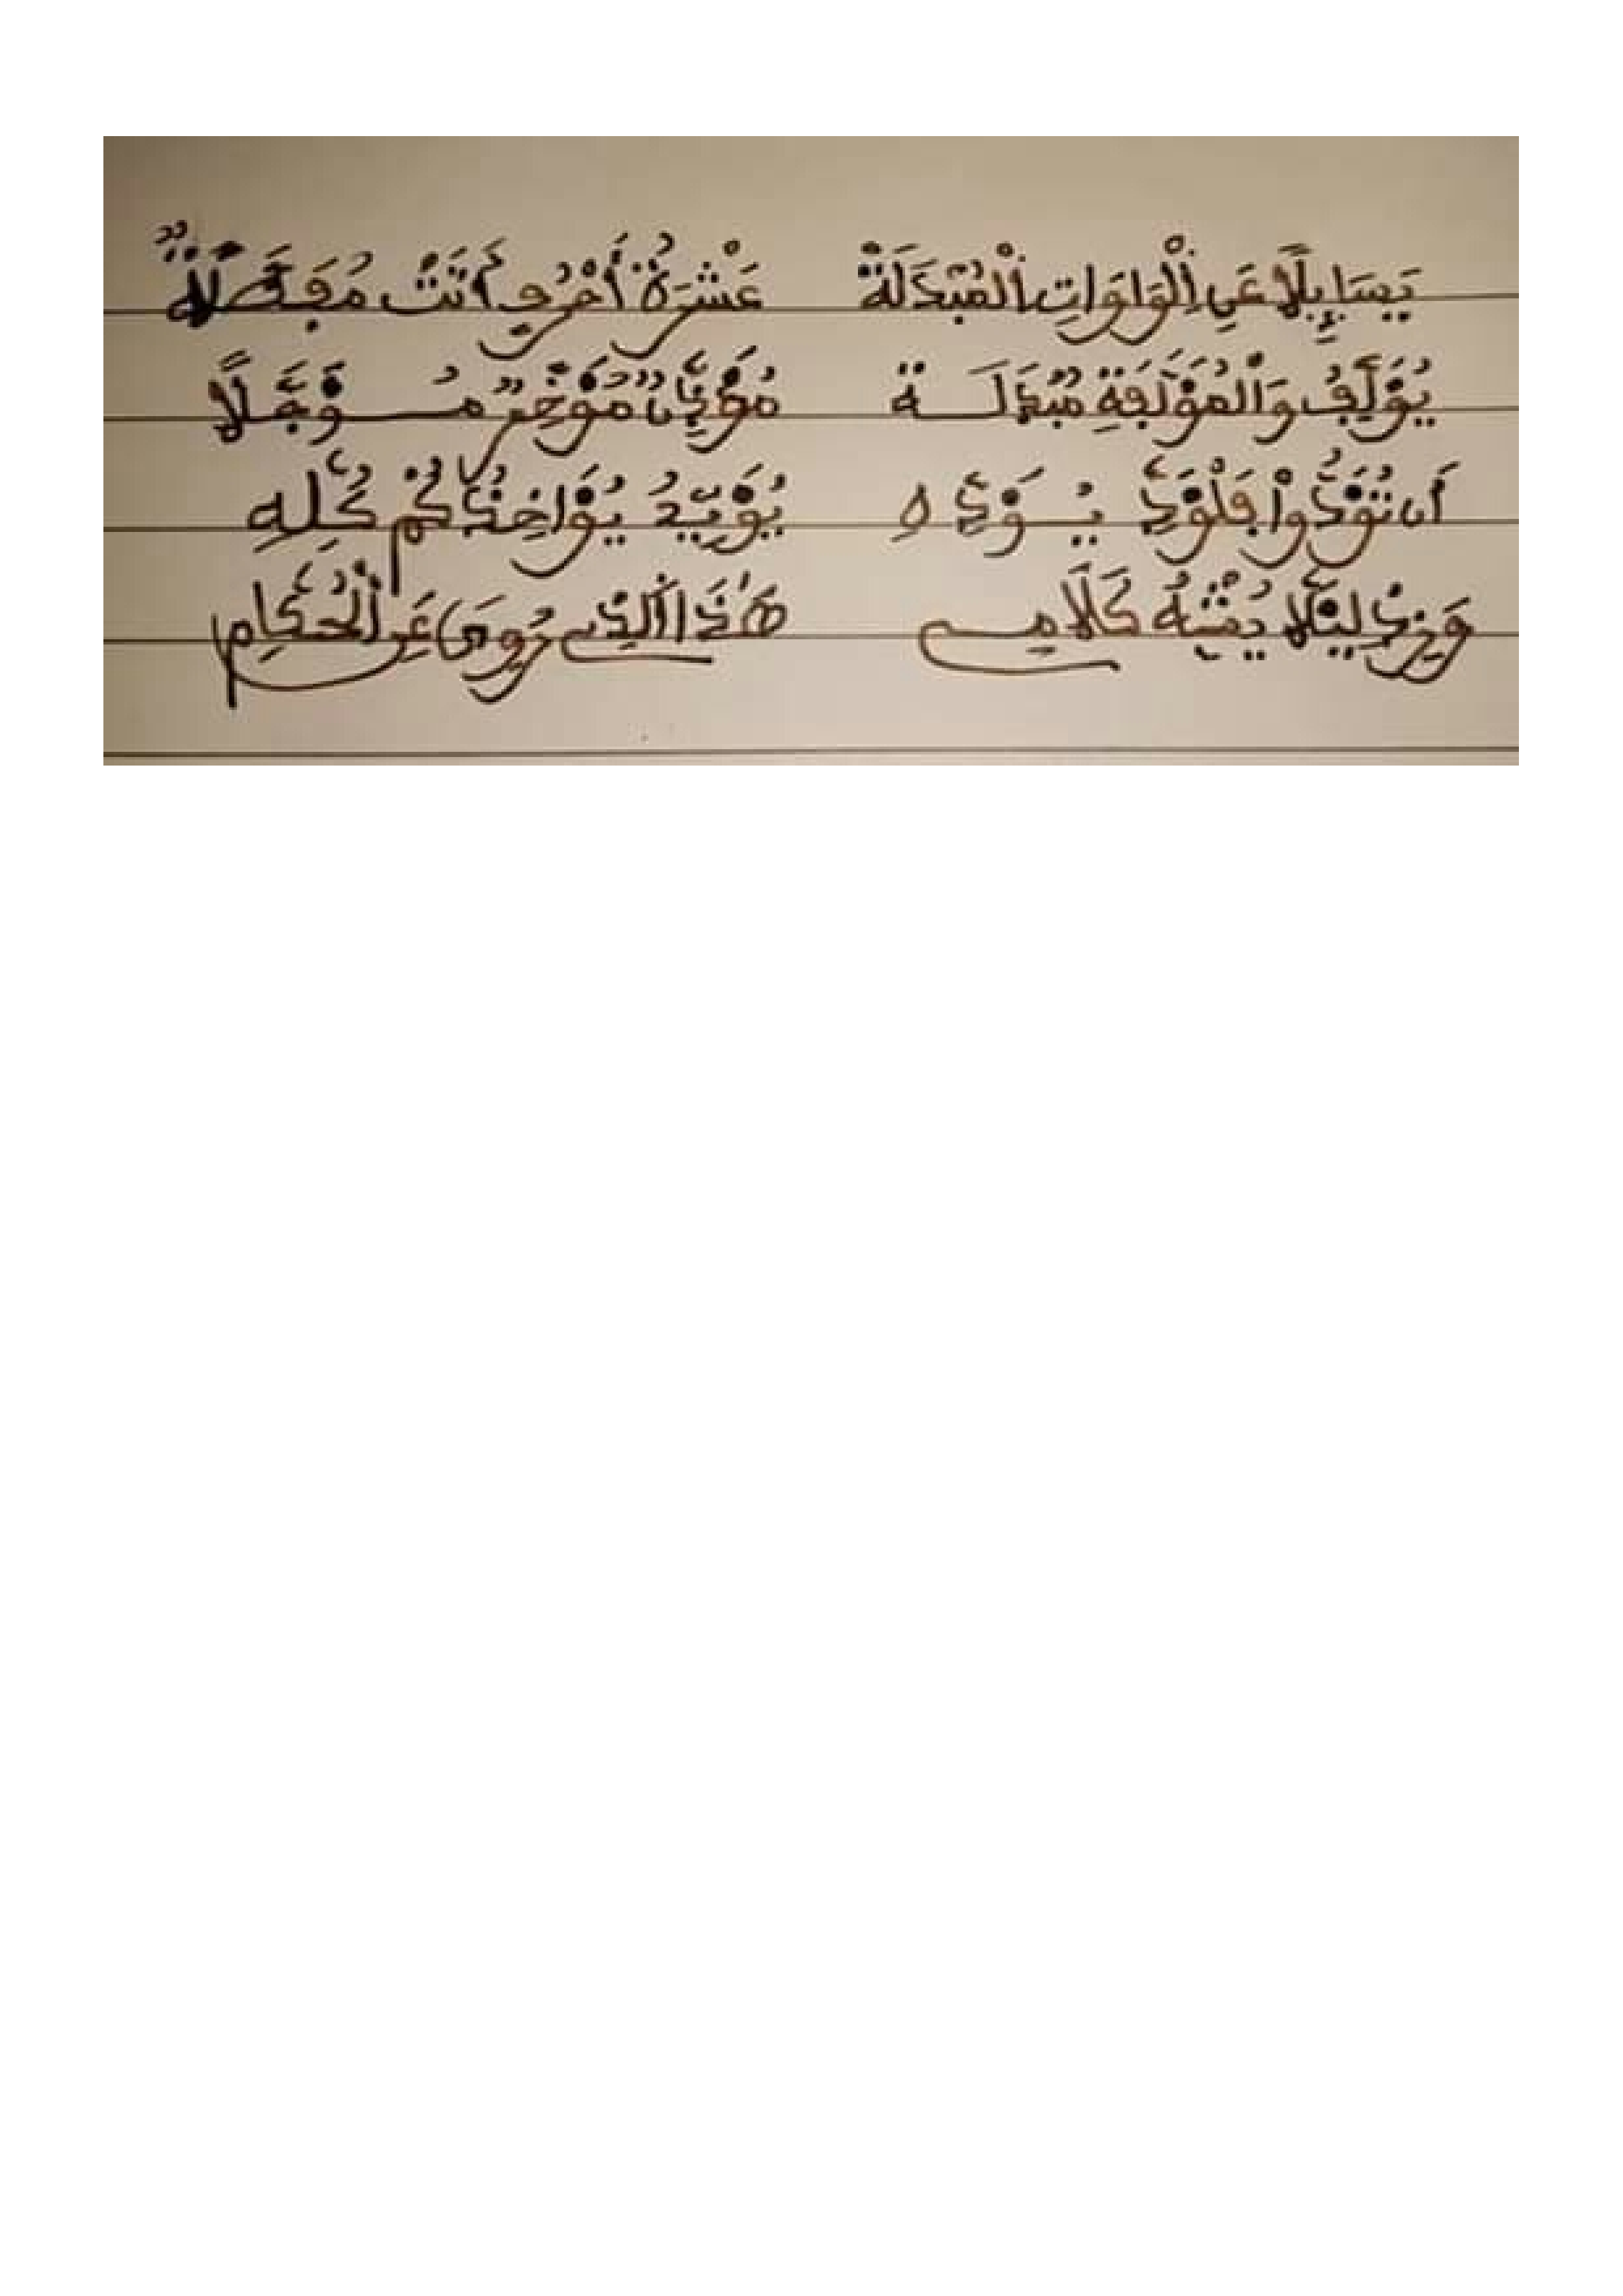 يَسَاإِيلًا عَنِ اِلْوَاوَاتِ اِلْمُبْدَلَةْ عَشْرَةُ أَحْرُفٍ أَتَتْ مُفَصَّلَةٌ
يُؤَلِّفُ وَالْمُؤَلَّفَةِ مُبْدَلَـــة مُؤَذِّنٌ مُؤَخِّرٌ مُـــؤَجَّلًا
أَن تُؤَدُّواْ فَلْيُؤَدِّ يُـــؤَدِّهِ يُؤَيِّدُ يُؤَاخِذُكُم كُلِّهِ
وَزِدْ لِيَلَّا يُشْبِهُ كَلَامِے هَٰذَا اَلذِے رُوِىَ عَنِ اَلْحُكَّامِ